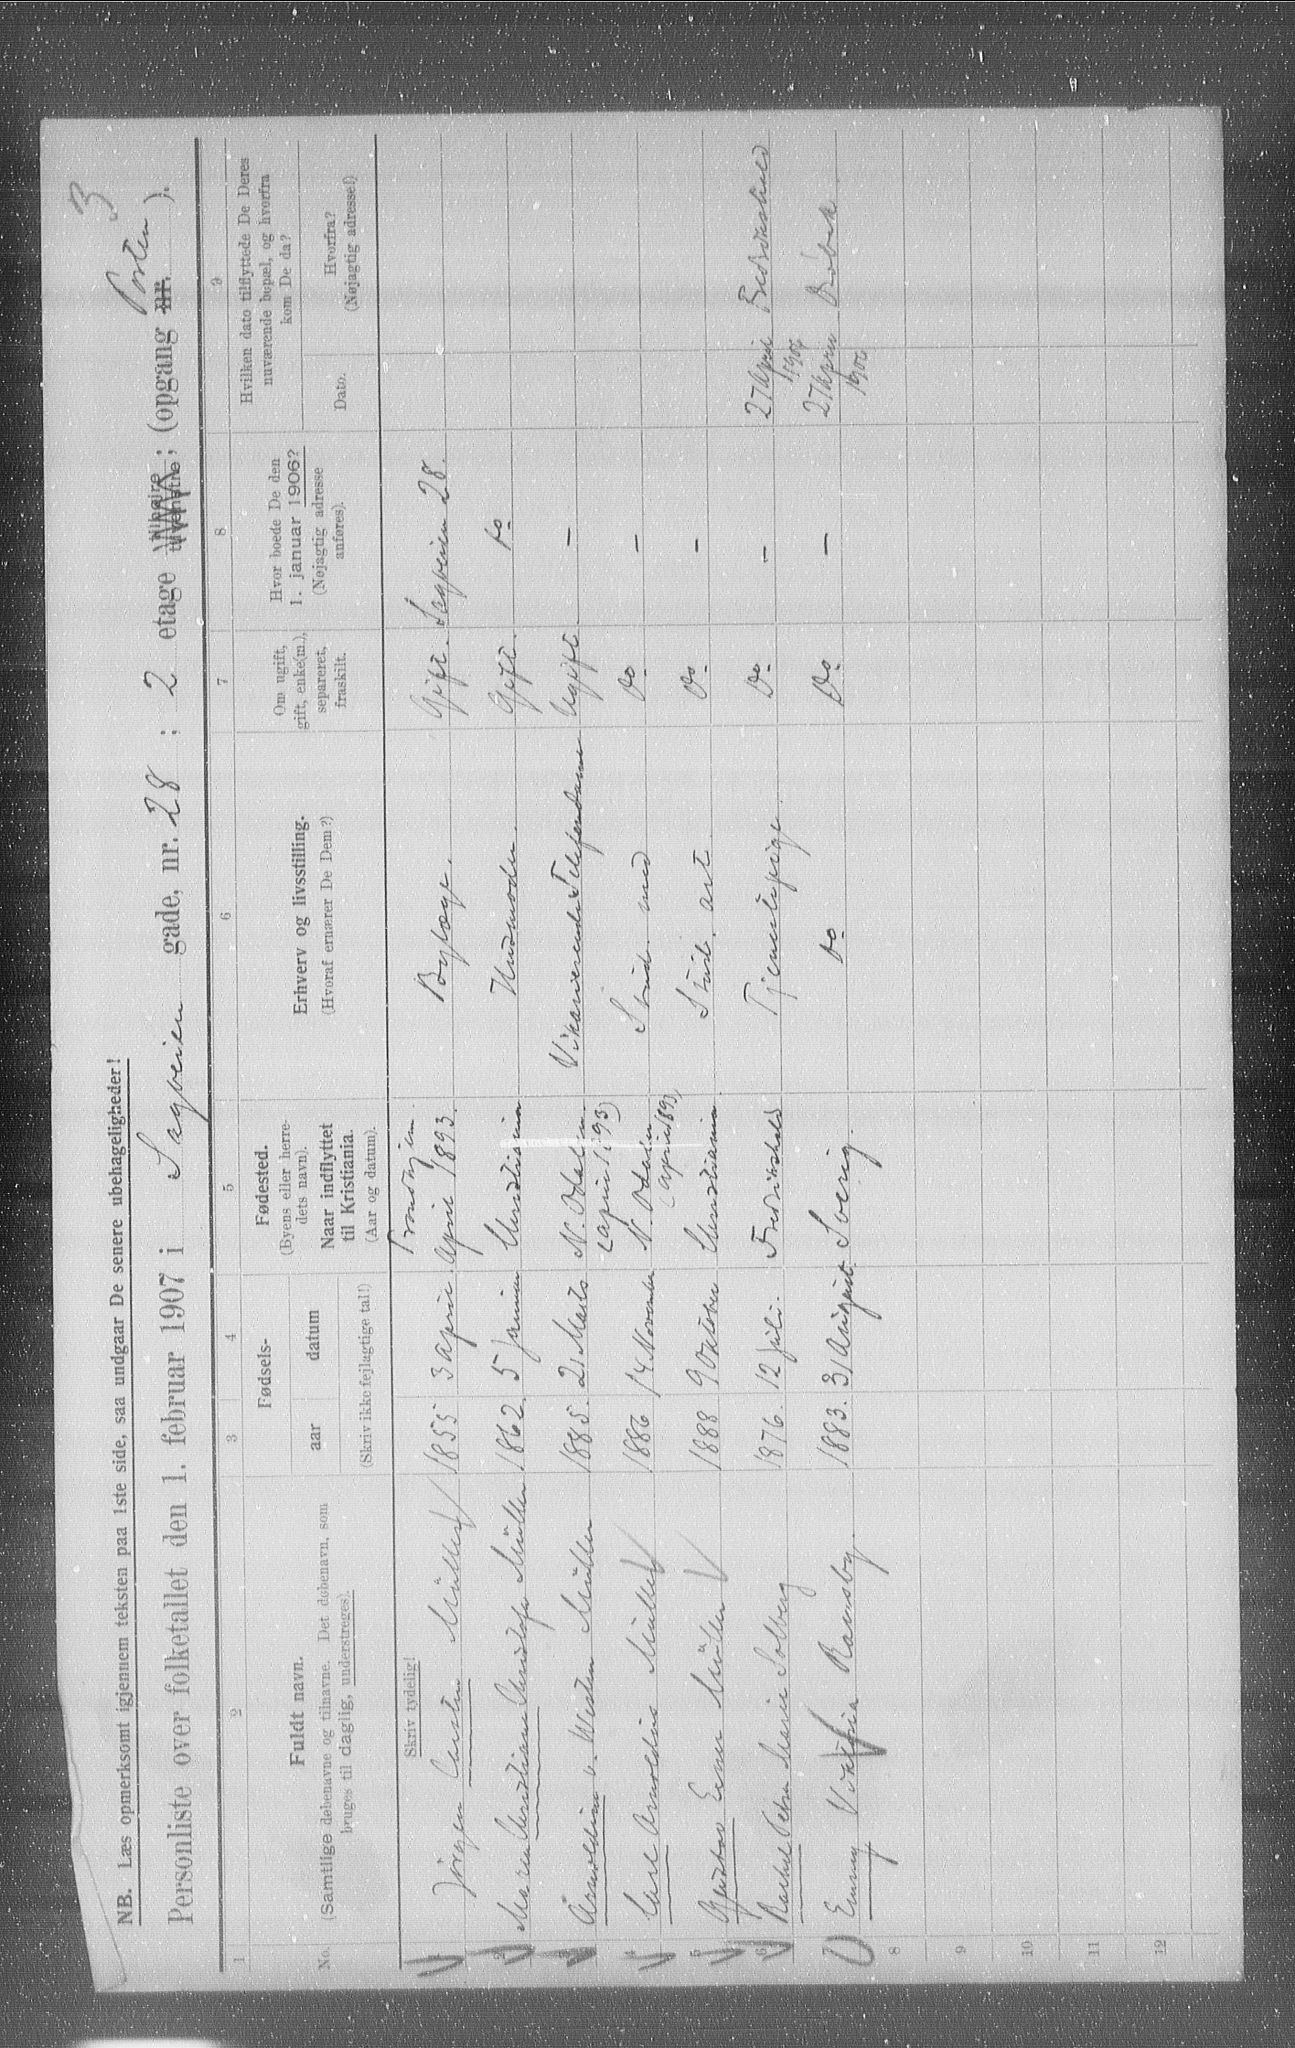 3
NB. Læs opmerksomt igjennem teksten paa 1ste side, saa undgaar De senere ubehageligheder!
Personliste over folketallet den 1. februar 1907 i Sagveien gade, nr. 28 ; 2 etage ; (opgang nr. Porten ).
1 2 3 4 5 6 7 8 9
No.
Fuldt navn.
(Samtlige døbenavne og tilnavne. Det døbenavn, som
bruges til daglig, understreges).
Fødsels-
aar datum
(Skriv ikke fejlagtige tal!)
Fødested.
(Byens eller herre-
dets navn).
Naar indflyttet
til Kristiania.
(Aar og datum).
Erhverv og livsstilling.
(Hvoraf ernærer De Dem?)
Om ugift,
gift, enke(m.),
separeret,
fraskilt.
Hvor boede De den
1. januar 1906?
(Nøjagtig adresse
anføres).
Hvilken dato tilflyttede De Deres
nuværende bopæl, og hvorfra
kom De da?
Dato.
Hvorfra?
(Nøjagtig adresse!)
Skriv tydelig!
Trondhjem.
1 Jörgen Carsten Müller 1855 3 April April 1893. Bylæge. Gift. Sagveien 28.
2 Maren Christiane Müller 1862. 5 Januar Christiania Husmoder. Gift. do
3 v. Westen Müller 1885. 21 Marts N. Odalen Vikarierende Telefondame Ugift. –
(April 1893)
4 Carl Arnoldus Müller 1886 14 November N. Odalen Stud. med do –
(April 1893)
5 Gustav Einer Müller 1888 9 Oktober Christiania Stud. art. do –
6 Rachel Petra Marie Solberg 1876. 12 Juli. Fredrikshald Tjenestepige. do – 27 April Fredrikshald
1906
7 Emmy Viktoria Ramsby. 1883. 31 August. Sverig. do Do – 27 April Dröbak.
1906
8
9
10
11
12